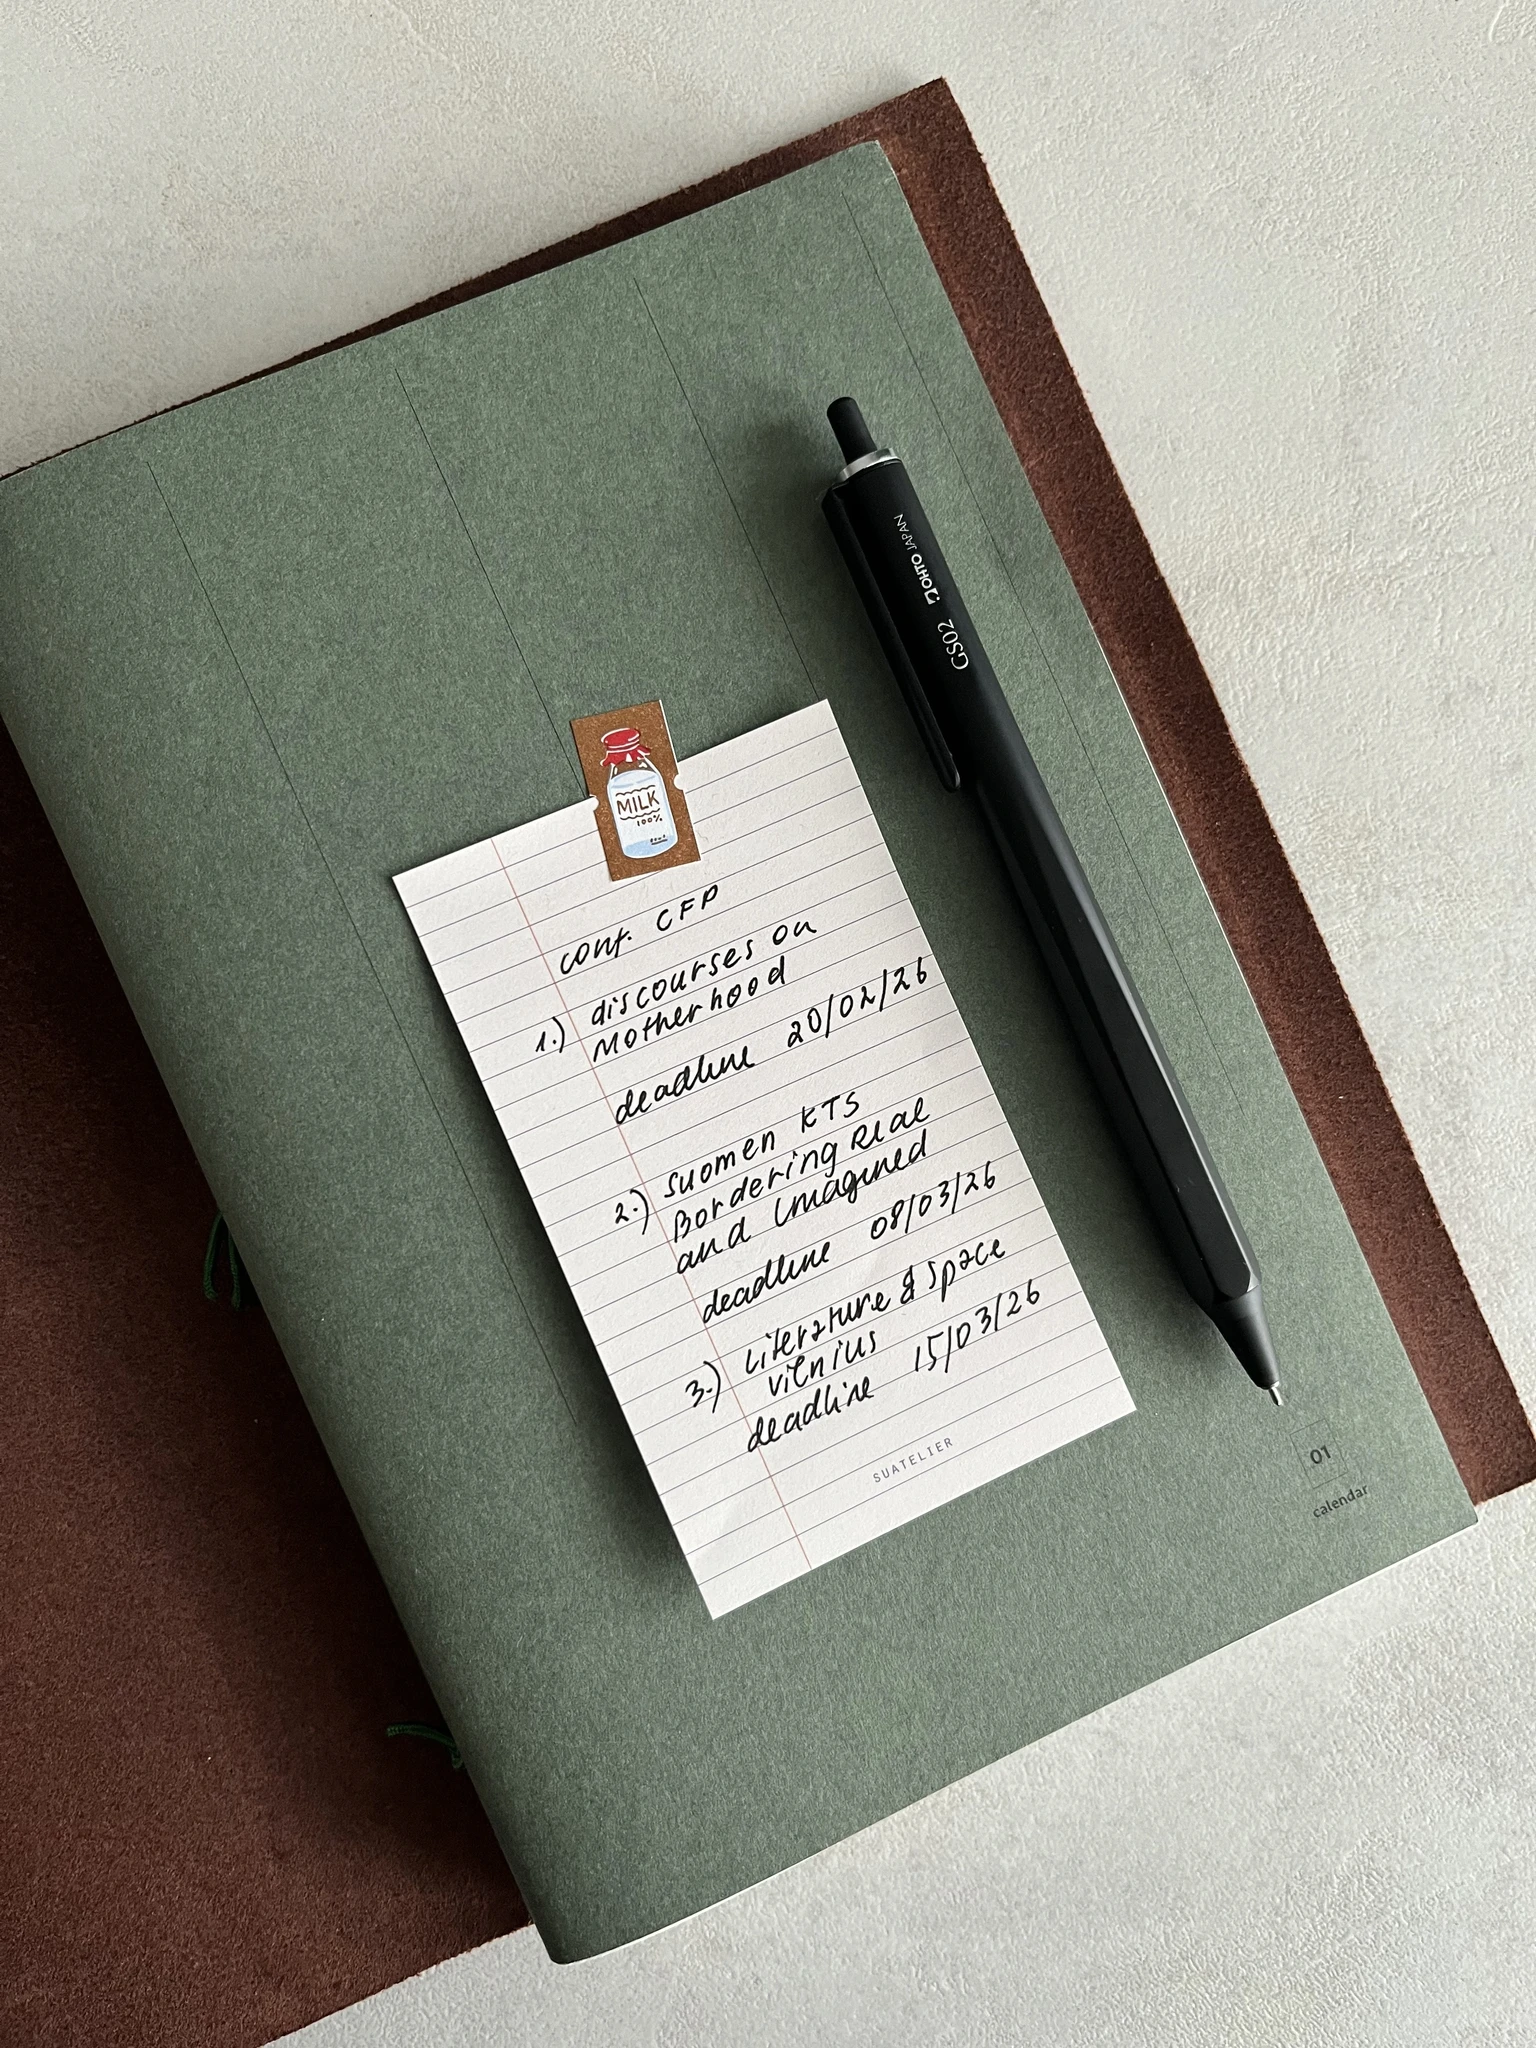 GS02 OHTO JAPAN
MILK
100%
conf. CFP
1.) discourses on
Motherhood
deadline 20/02/26
2.) Suomen KTS
Bordering Real
and Imagined
deadline 08/03/26
3.) Literature & Space
Vilnius
deadline 15/03/26
SUATELIER
01
calendar